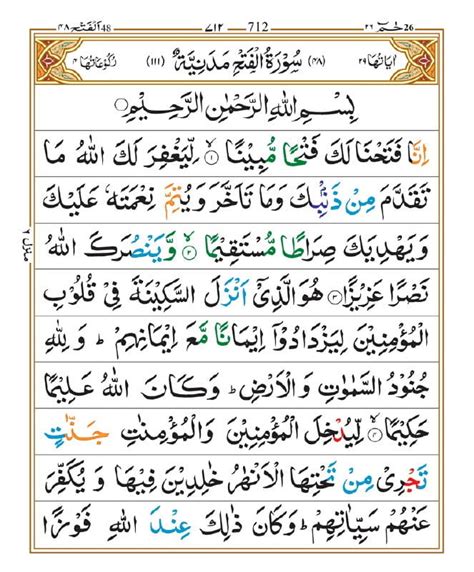 الفتح 48 ٤٨ ٧١٢ 712 حٰمٓ 26 ٢٦
اٰيَاتُهَا ٢٩ (٤٨) سُوْرَةُ الْفَتْحِ مَدَنِيَّةٌ (١١١) رُكُوْعَاتُهَا ٤
بِسْمِ اللهِ الرَّحْمٰنِ الرَّحِيْمِ
اِنَّا فَتَحْنَا لَكَ فَتْحًا مُّبِيْنًا ۙ ١ لِّيَغْفِرَ لَكَ اللهُ مَا
تَقَدَّمَ مِنْ ذَنْۢبِكَ وَمَا تَاَخَّرَ وَيُتِمَّ نِعْمَتَهٗ عَلَيْكَ
وَيَهْدِيَكَ صِرَاطًا مُّسْتَقِيْمًا ۙ ٢ وَّيَنْصُرَكَ اللهُ
نَصْرًا عَزِيْزًا ٣ هُوَ الَّذِيْٓ اَنْزَلَ السَّكِيْنَةَ فِيْ قُلُوْبِ
الْمُؤْمِنِيْنَ لِيَزْدَادُوْٓا اِيْمَانًا مَّعَ اِيْمَانِهِمْ ؕ وَلِلّٰهِ
جُنُوْدُ السَّمٰوٰتِ وَالْاَرْضِ ؕ وَكَانَ اللهُ عَلِيْمًا
حَكِيْمًا ۙ ٤ لِّيُدْخِلَ الْمُؤْمِنِيْنَ وَالْمُؤْمِنٰتِ جَنّٰتٍ
تَجْرِيْ مِنْ تَحْتِهَا الْاَنْهٰرُ خٰلِدِيْنَ فِيْهَا وَيُكَفِّرَ
عَنْهُمْ سَيِّاٰتِهِمْ ؕ وَكَانَ ذٰلِكَ عِنْدَ اللهِ فَوْزًا